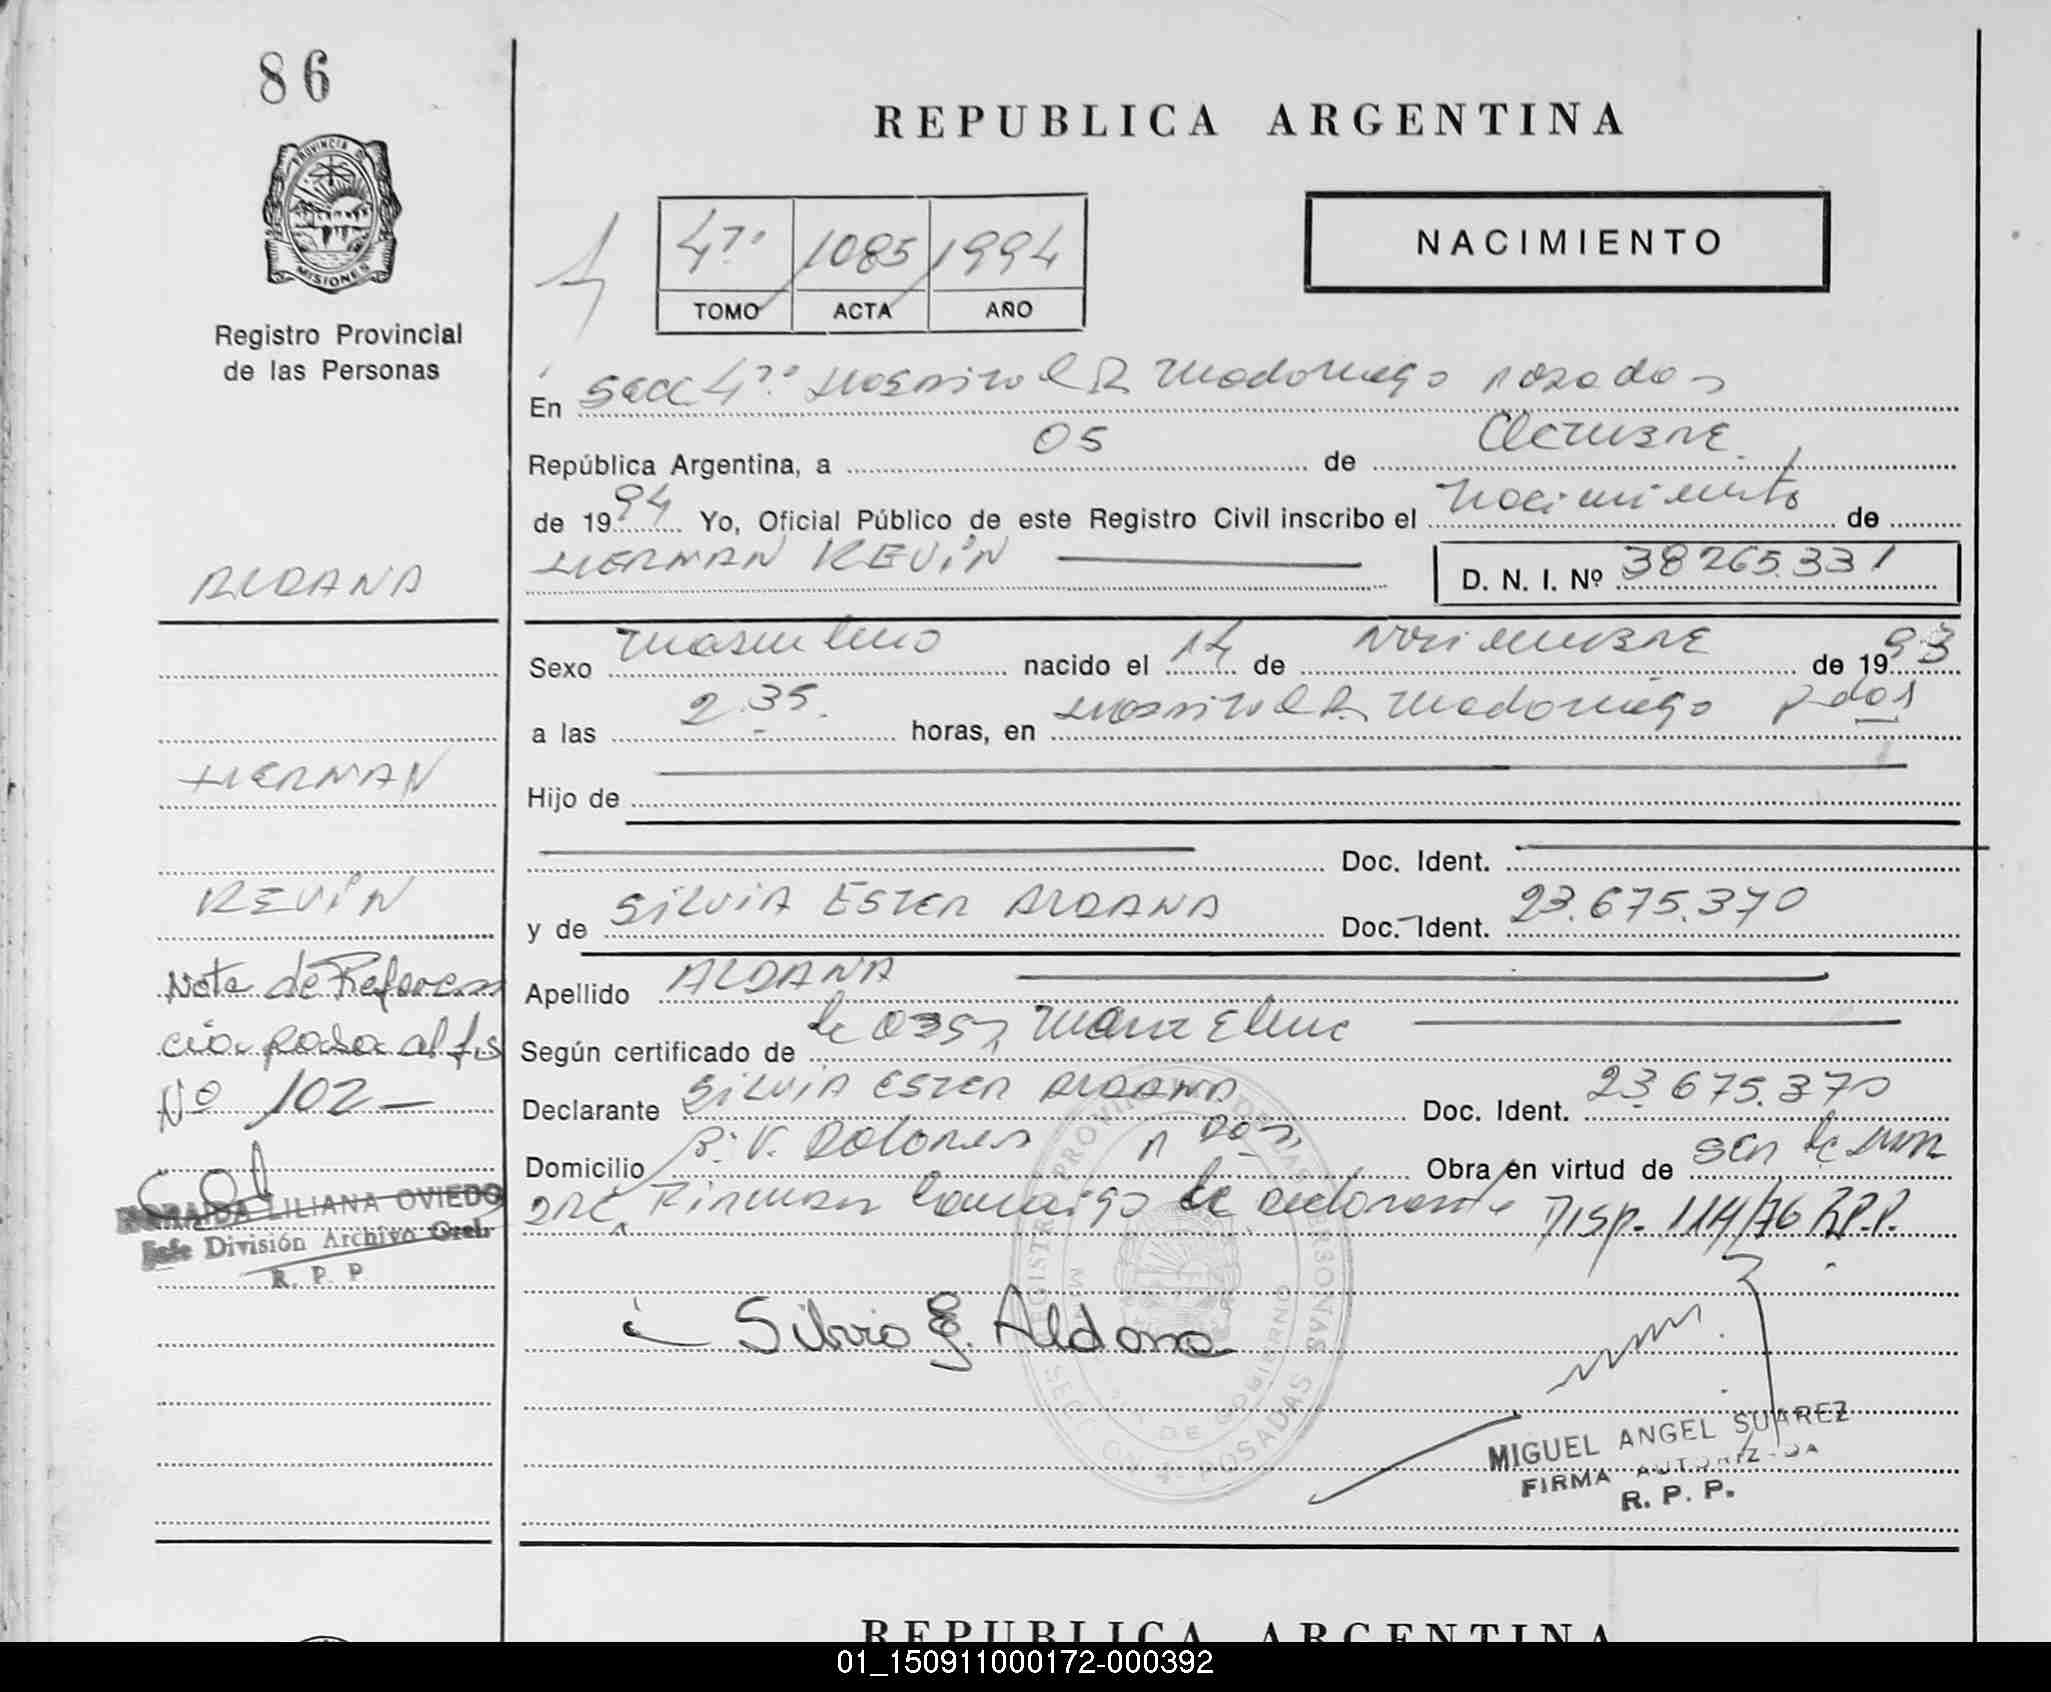 86
PROVINCIA DE
MISIONES
Registro Provincial
de las Personas
REPUBLICA ARGENTINA
4to 1085 1994
TOMO ACTA AÑO
NACIMIENTO
En Secc 4to Hospital R Madariaga Posadas
República Argentina, a 05 de Octubre
de 1994 Yo, Oficial Público de este Registro Civil inscribo el Nacimiento de
HERMAN KEVIN D. N. I. Nº 38265.331
Sexo Masculino nacido el 14 de Noviembre de 1993
a las 2.35. horas, en Hospital R. Madariaga Pdas
Hijo de
Doc. Ident.
y de SILVIA ESTER ALDANA Doc. Ident. 23.675.370
Apellido ALDANA
Según certificado de
Declarante SILVIA ESTER ALDANA Doc. Ident. 23.675.370
Domicilio B. V. Dolores Obra en virtud de ser la
Disp. 114/76 R.P.P.
Silvia E. Aldana
MIGUEL ANGEL SUAREZ
FIRMA AUTORIZADA
R. P. P.
ALDANA
HERMAN
KEVIN
Nota de Referen
cia pasa al fis
Nº 102
LILIANA OVIEDO
Jefe División Archivo Gral.
R. P. P
REGISTRO PROVINCIAL DE LAS PERSONAS
DE GOBIERNO
SECCION 4ª POSADAS
REPUBLICA ARGENTINA
01_150911000172-000392